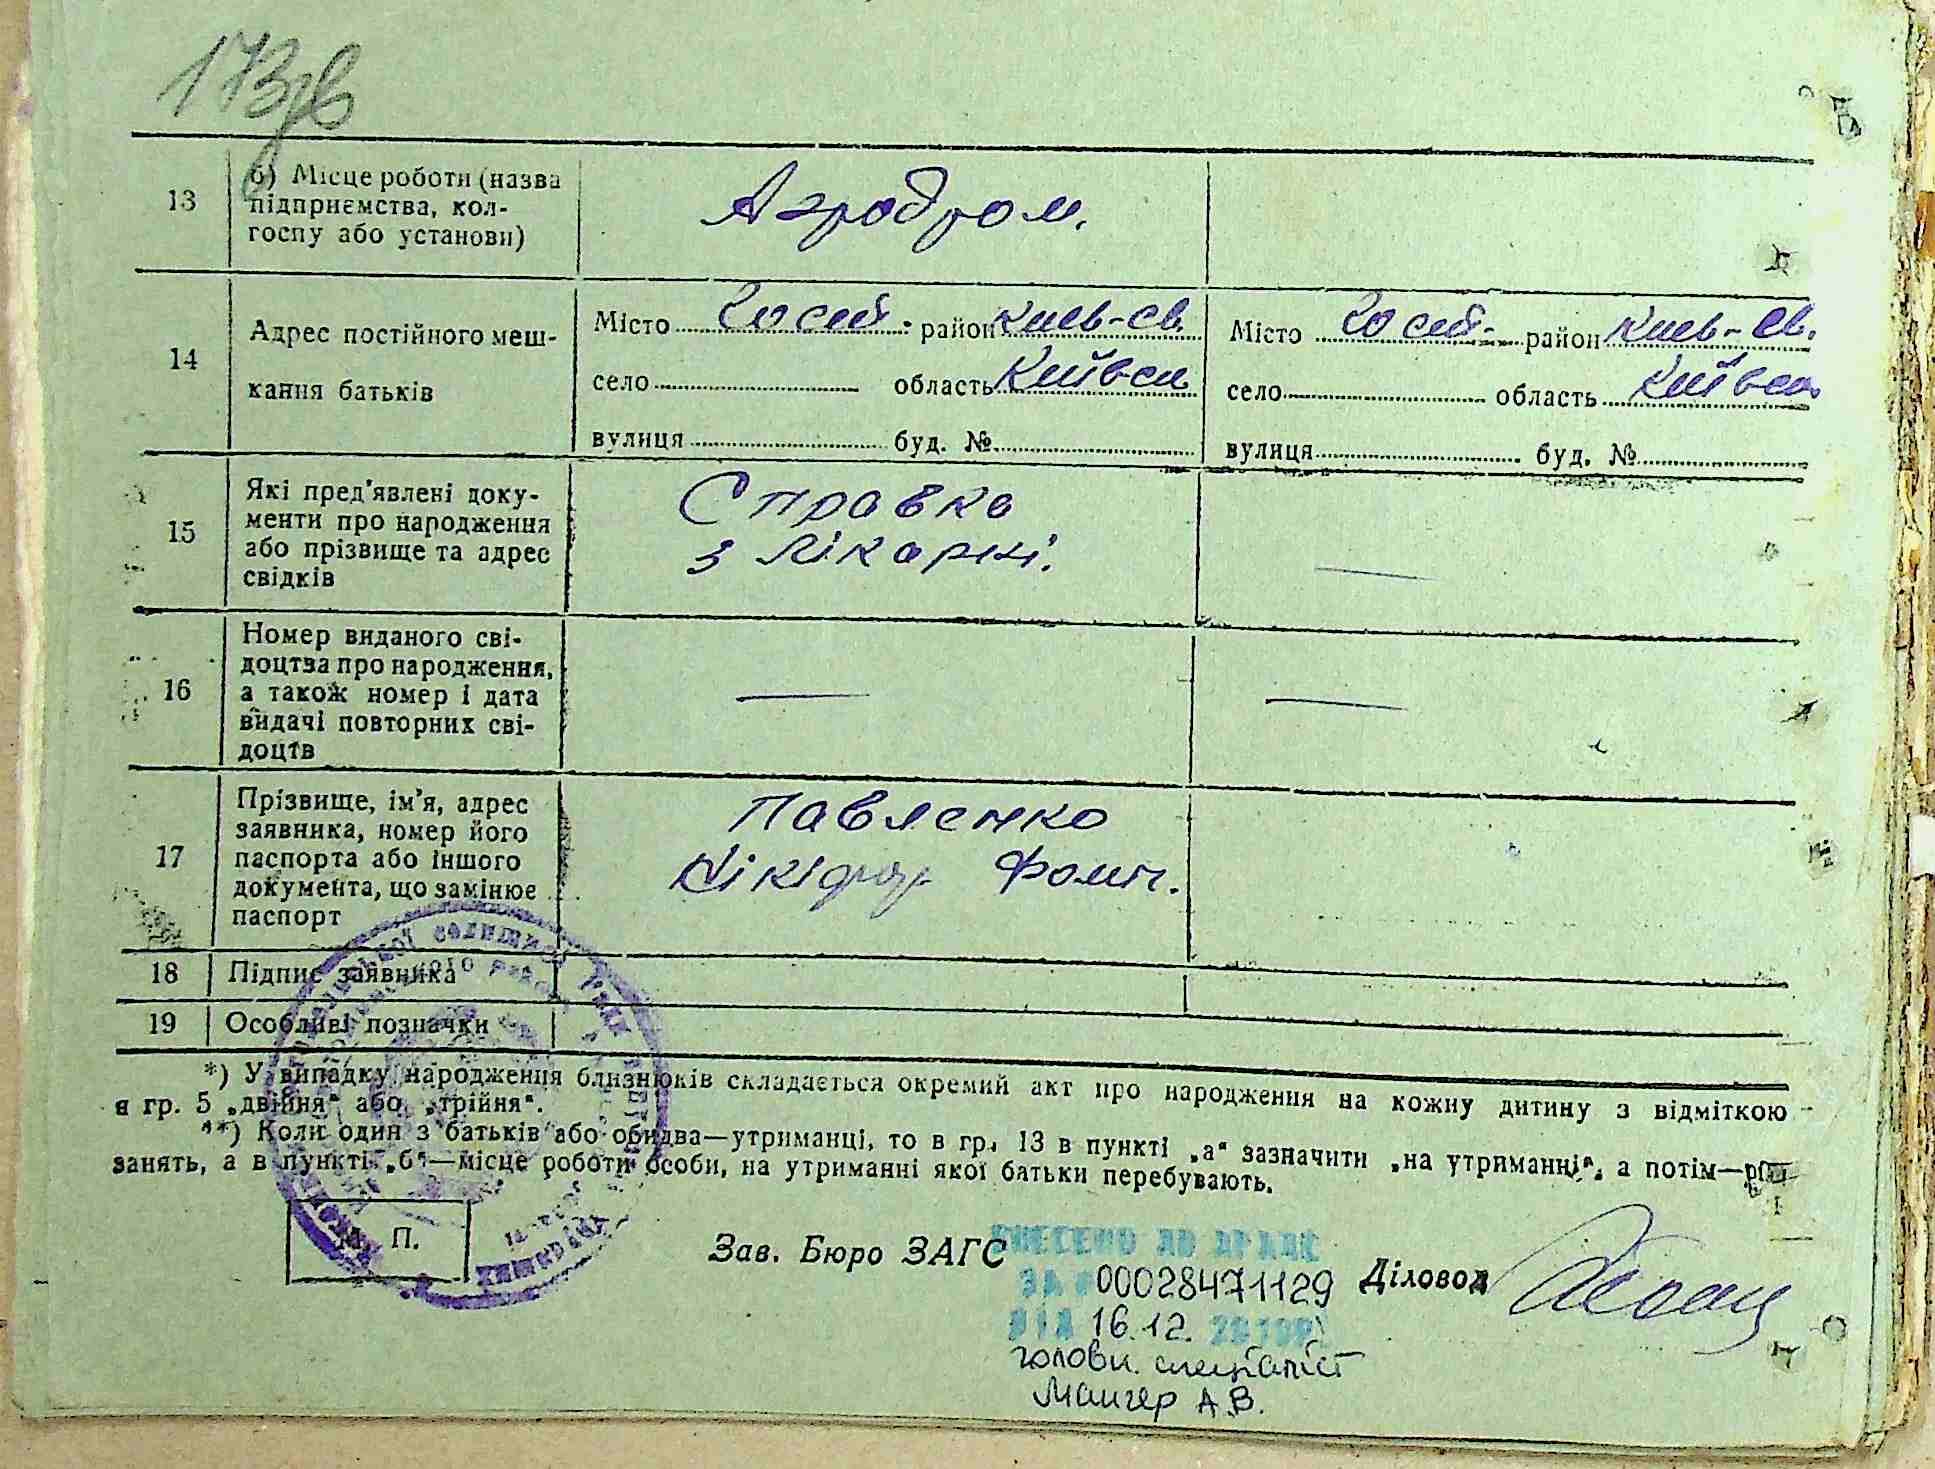 173зв
13
б) Місце роботи (назва
підприємства, кол-
госпу або установи)
Аэродром.
14
Адрес постійного меш-
кання батьків
Місто район Киев-Св.
село область Київськ
вулиця буд. №
Місто район Киев-Св.
село область Київськ
вулиця буд. №
15
Які пред'явлені доку-
менти про народження
або прізвище та адрес
свідків
Справка
з лікарні.
—
16
Номер виданого сві-
доцтва про народження,
а також номер і дата
видачі повторних сві-
доцтв
—
—
17
Прізвище, ім'я, адрес
заявника, номер його
паспорта або іншого
документа, що замінює
паспорт
Павленко
Нікіфор Фомич.
18 Підпис заявника
19 Особливі позначки
*) У випадку народження близнюків складається окремий акт про народження на кожну дитину з відміткою
в гр. 5 „двійня“ або „трійня“.
**) Коли один з батьків або обидва—утриманці, то в гр. 13 в пункті „а“ зазначити „на утриманні“, а потім—рід
занять, а в пункті „б“—місце роботи особи, на утриманні якої батьки перебувають.
М. П.
Зав. Бюро ЗАГС
Діловод
ВНЕСЕНО ДО ДРАЦС
ЗА № 00028471129
ВІД 16.12. 2019р
головн. спеціаліст
Мангер А.В.